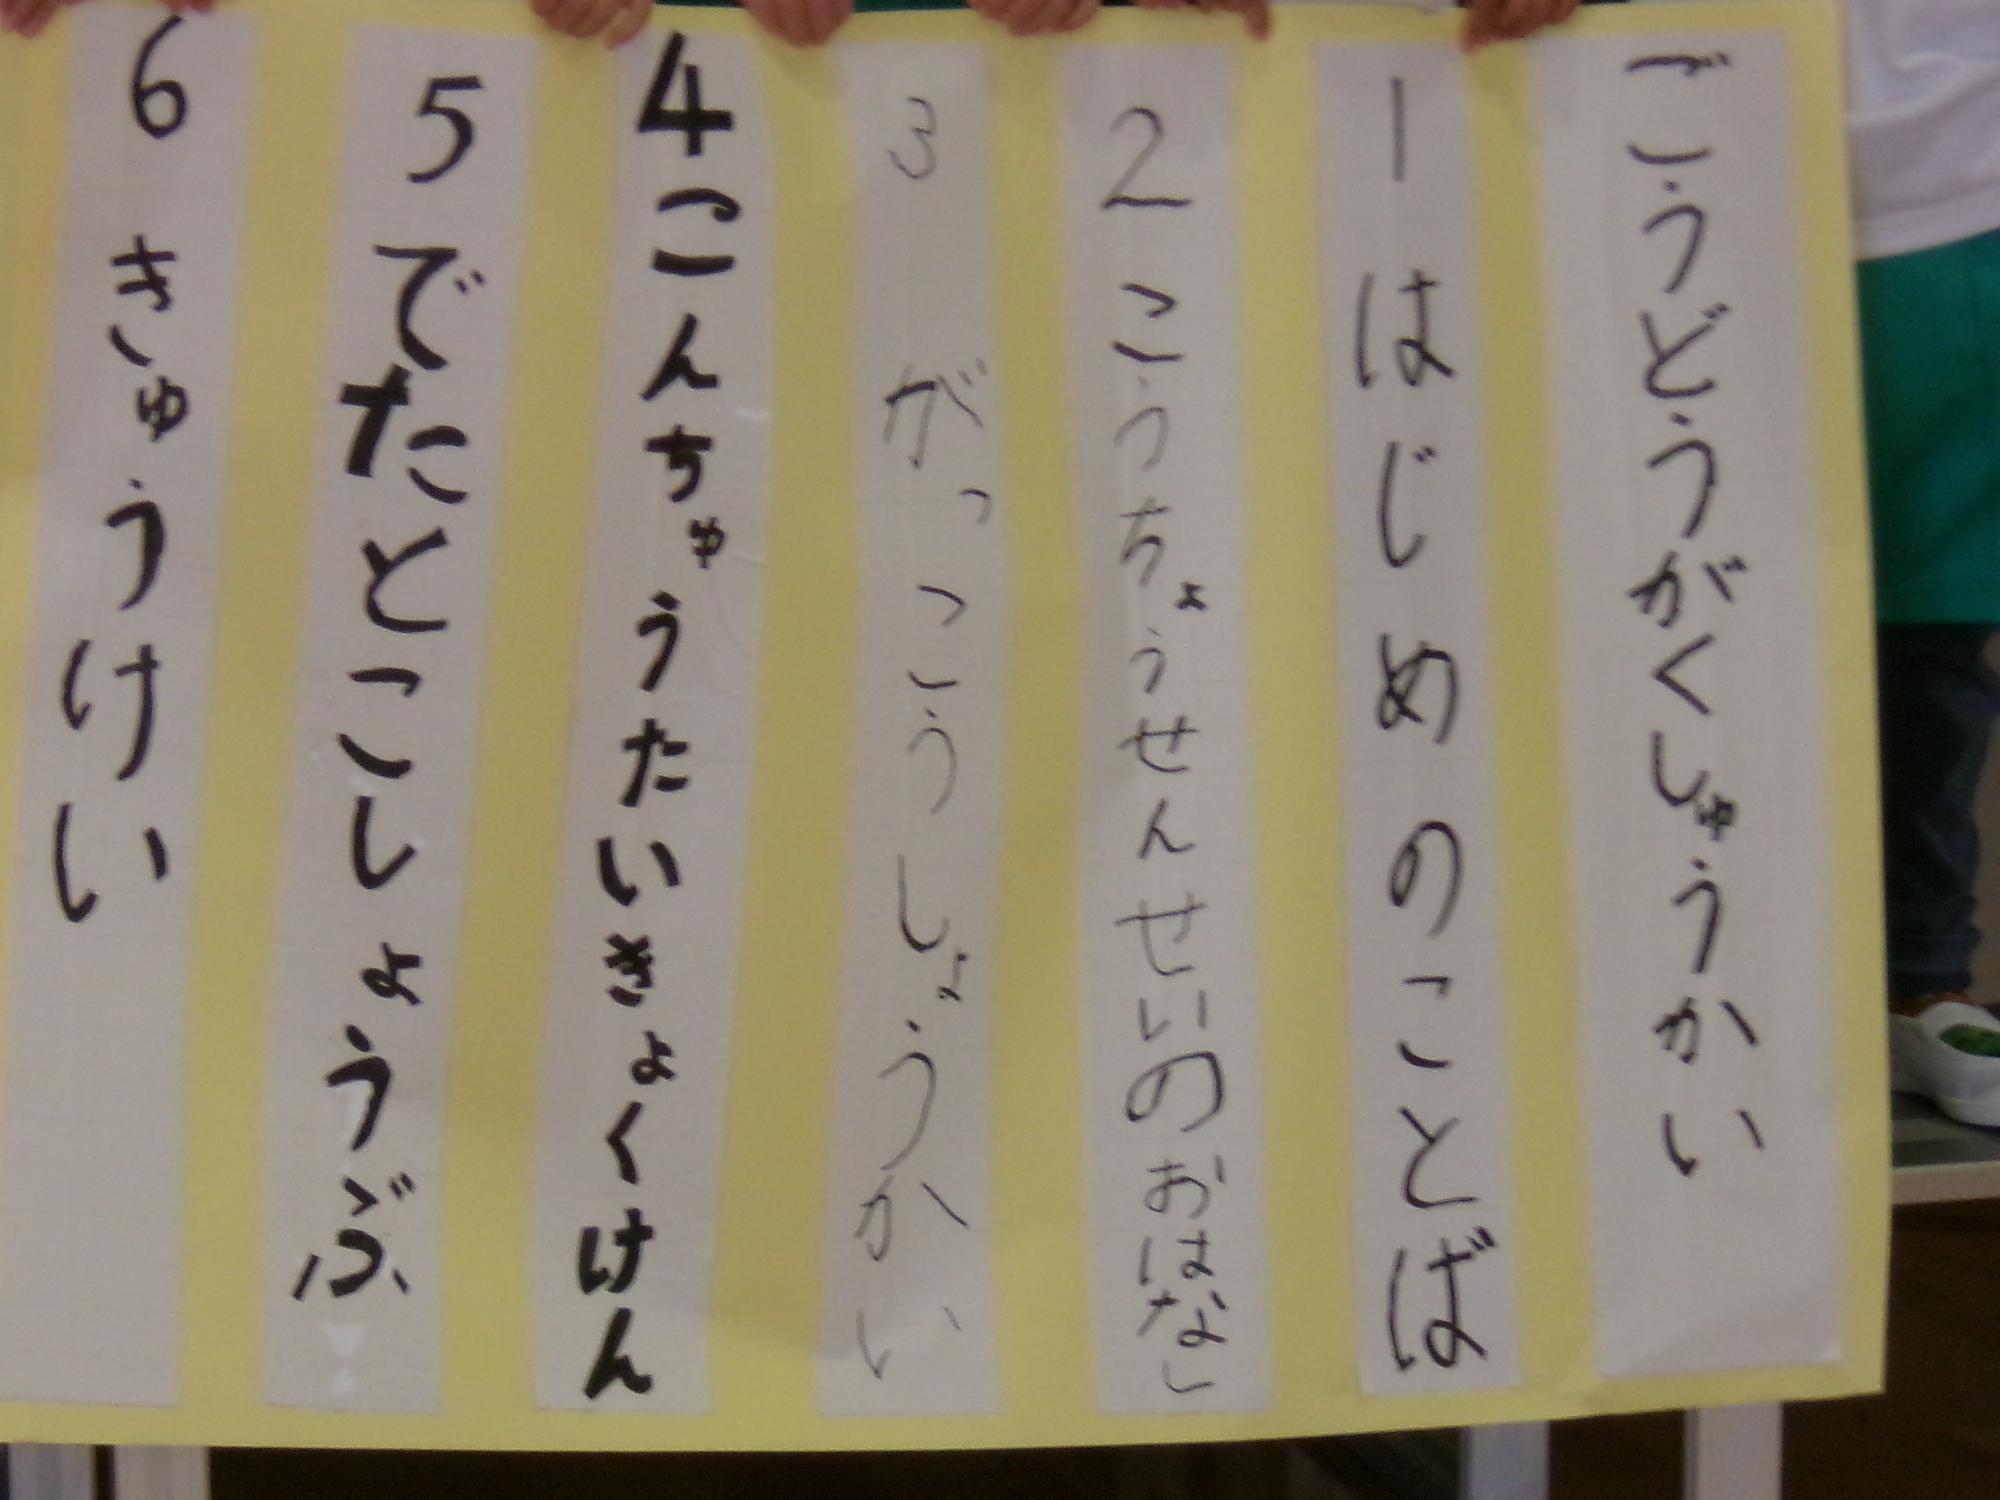 ごうどうがくしゅうかい
1 はじめのことば
2 こうちょうせんせいのおはなし
3 がっこうしょうかい
4 こんちゅうたいきょくけん
5 でたとこしょうぶ
6 きゅうけい